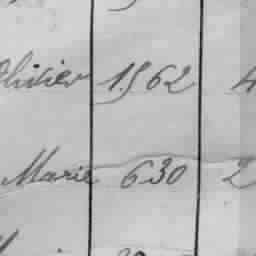 Olivier 1562 4
Marie 630 2